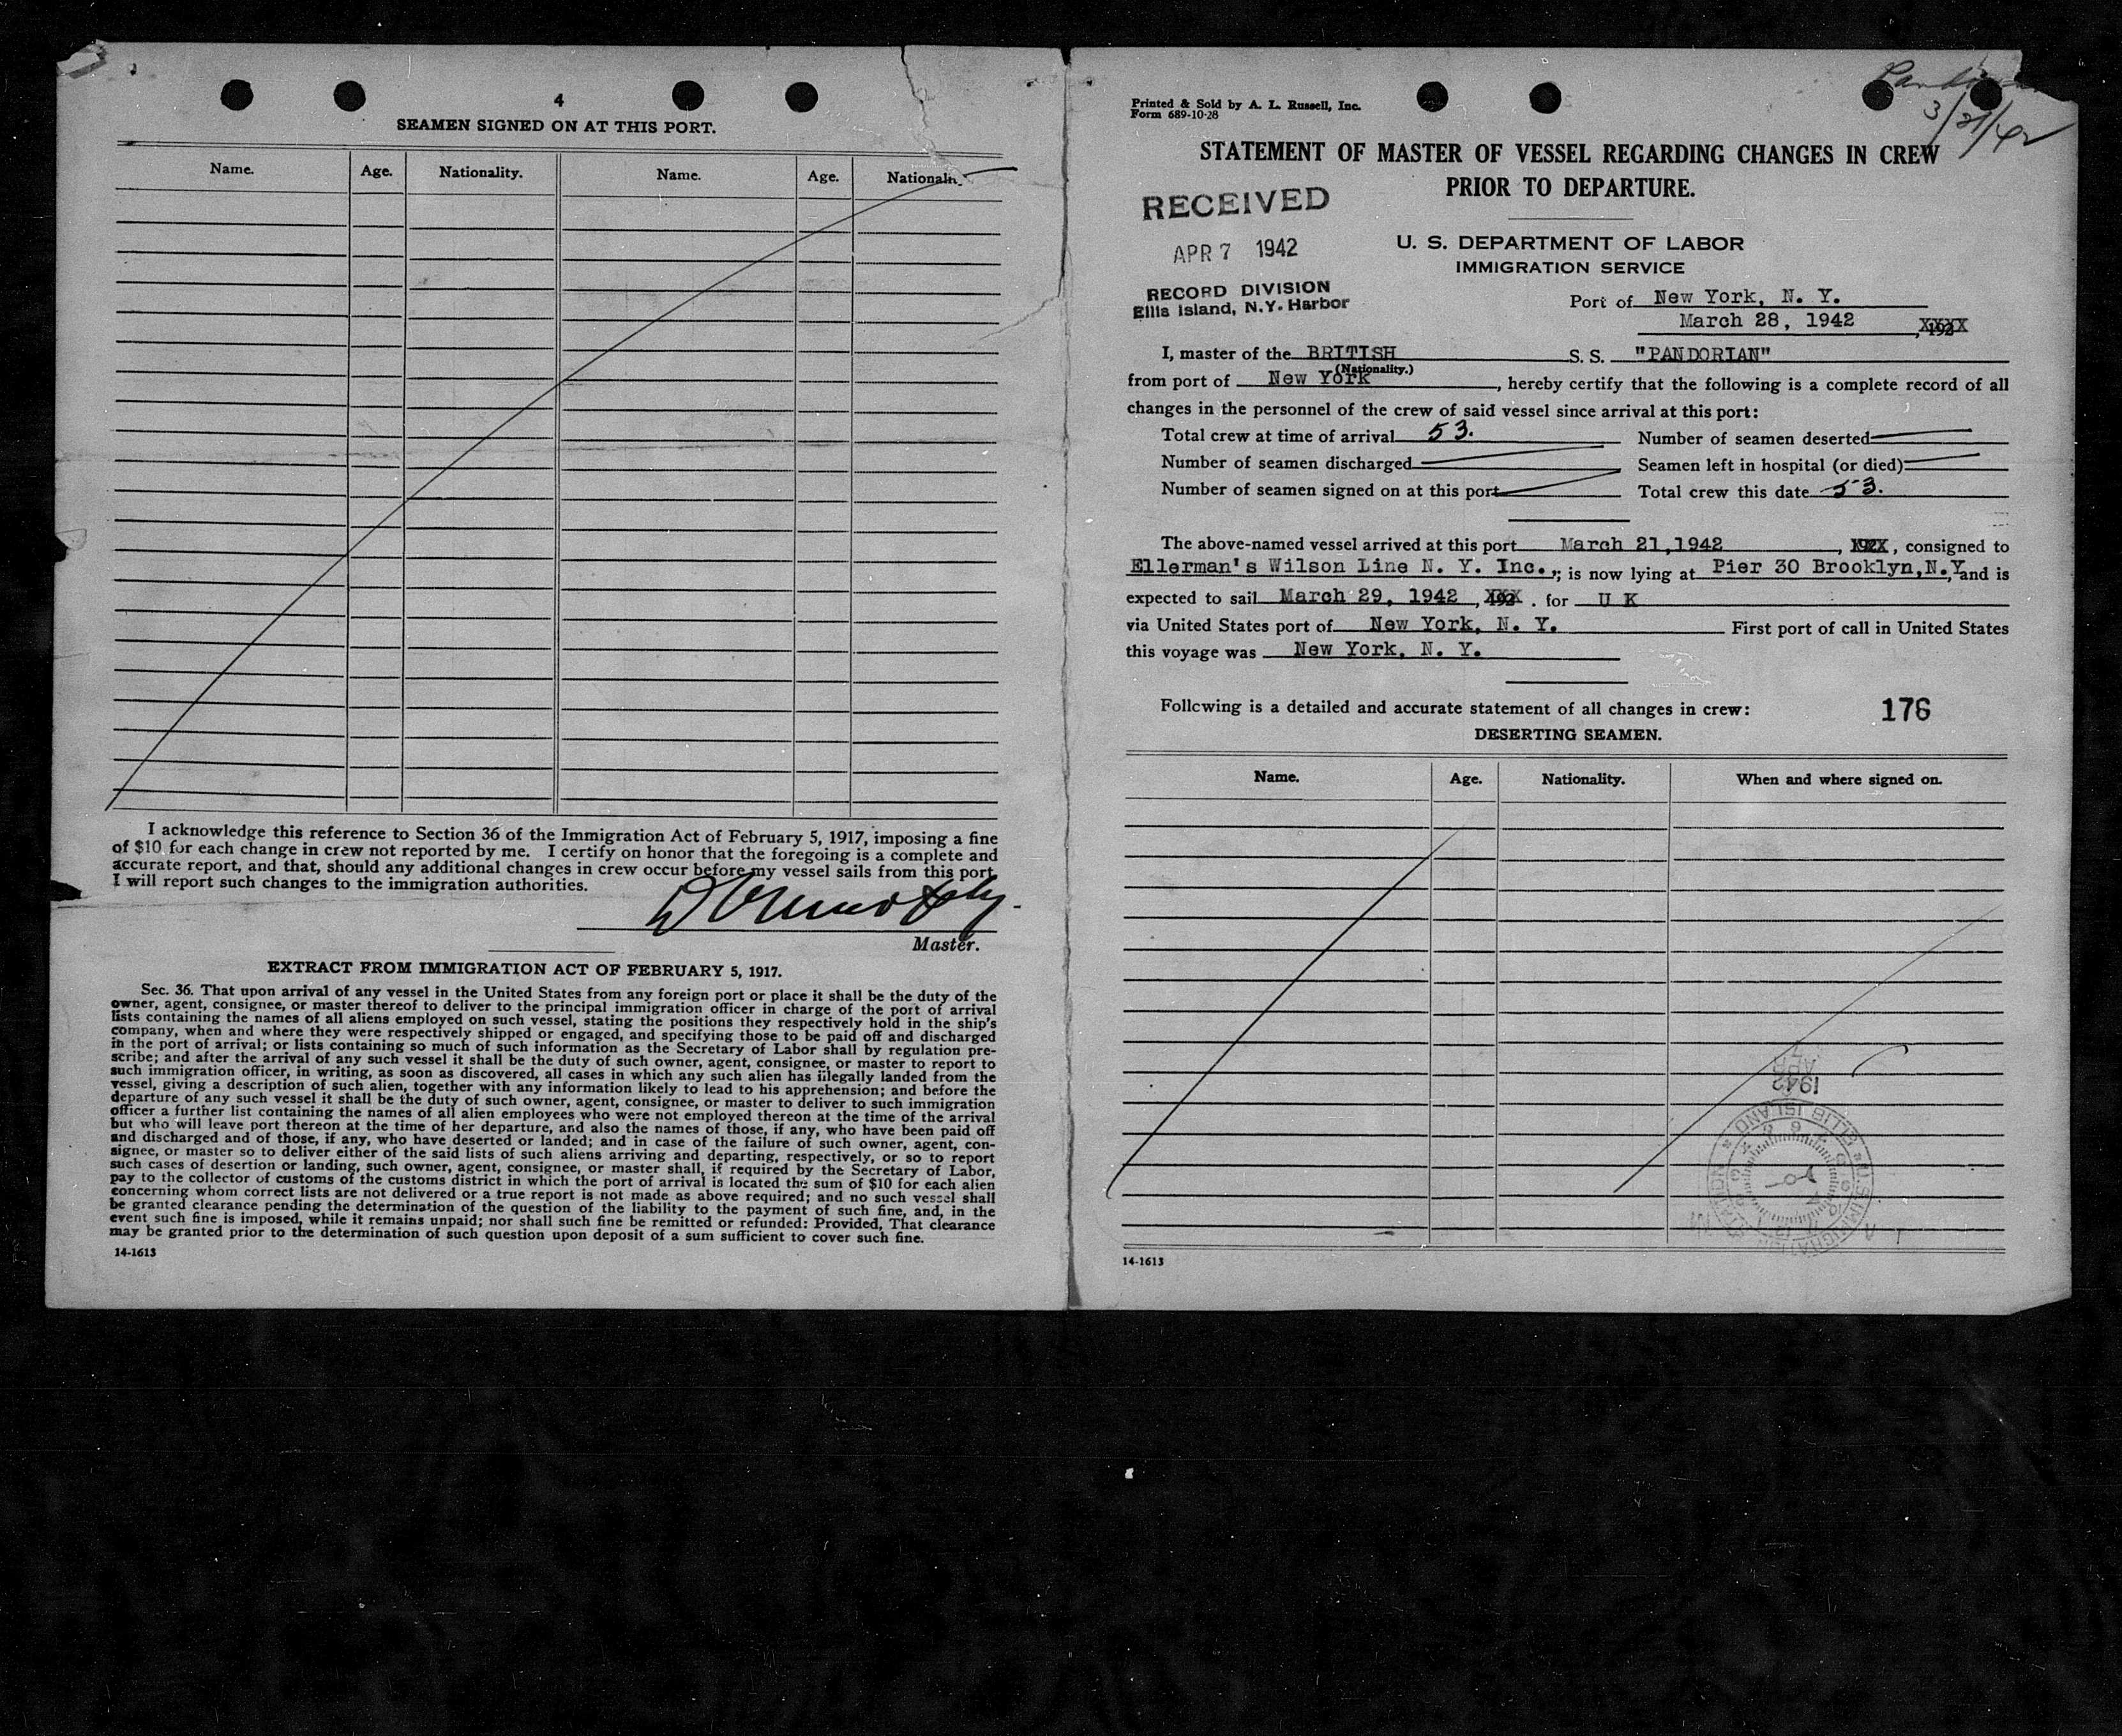 4
SEAMEN SIGNED ON AT THIS PORT.
Name. Age. Nationality. Name. Age. Nationality.
I acknowledge this reference to Section 36 of the Immigration Act of February 5, 1917, imposing a fine
of $10 for each change in crew not reported by me. I certify on honor that the foregoing is a complete and
accurate report, and that, should any additional changes in crew occur before my vessel sails from this port
I will report such changes to the immigration authorities.
Master.
EXTRACT FROM IMMIGRATION ACT OF FEBRUARY 5, 1917.
Sec. 36. That upon arrival of any vessel in the United States from any foreign port or place it shall be the duty of the
owner, agent, consignee, or master thereof to deliver to the principal immigration officer in charge of the port of arrival
lists containing the names of all aliens employed on such vessel, stating the positions they respectively hold in the ship's
company, when and where they were respectively shipped or engaged, and specifying those to be paid off and discharged
in the port of arrival; or lists containing so much of such information as the Secretary of Labor shall by regulation pre-
scribe; and after the arrival of any such vessel it shall be the duty of such owner, agent, consignee, or master to report to
such immigration officer, in writing, as soon as discovered, all cases in which any such alien has illegally landed from the
vessel, giving a description of such alien, together with any information likely to lead to his apprehension; and before the
departure of any such vessel it shall be the duty of such owner, agent, consignee, or master to deliver to such immigration
officer a further list containing the names of all alien employees who were not employed thereon at the time of the arrival
but who will leave port thereon at the time of her departure, and also the names of those, if any, who have been paid off
and discharged and of those, if any, who have deserted or landed; and in case of the failure of such owner, agent, con-
signee, or master so to deliver either of the said lists of such aliens arriving and departing, respectively, or so to report
such cases of desertion or landing, such owner, agent, consignee, or master shall, if required by the Secretary of Labor,
pay to the collector of customs of the customs district in which the port of arrival is located the sum of $10 for each alien
concerning whom correct lists are not delivered or a true report is not made as above required; and no such vessel shall
be granted clearance pending the determination of the question of the liability to the payment of such fine, and, in the
event such fine is imposed, while it remains unpaid; nor shall such fine be remitted or refunded: Provided, That clearance
may be granted prior to the determination of such question upon deposit of a sum sufficient to cover such fine.
14-1613
Printed & Sold by A. L. Russell, Inc.
Form 689-10-28
3/21/42
STATEMENT OF MASTER OF VESSEL REGARDING CHANGES IN CREW
PRIOR TO DEPARTURE.
RECEIVED
APR 7 1942
RECORD DIVISION
Ellis Island, N.Y. Harbor
U. S. DEPARTMENT OF LABOR
IMMIGRATION SERVICE
Port of New York, N. Y.
March 28, 1942 , 192
I, master of the BRITISH S. S. "PANDORIAN"
(Nationality.)
from port of New York , hereby certify that the following is a complete record of all
changes in the personnel of the crew of said vessel since arrival at this port:
Total crew at time of arrival 53. Number of seamen deserted
Number of seamen discharged Seamen left in hospital (or died)
Number of seamen signed on at this port Total crew this date 53.
The above-named vessel arrived at this port March 21,1942 , 192 , consigned to
Ellerman's Wilson Line N. Y. Inc., ; is now lying at Pier 30 Brooklyn,N.Y, and is
expected to sail March 29, 1942 , 192 . for U K
via United States port of New York, N. Y. First port of call in United States
this voyage was New York, N. Y.
Following is a detailed and accurate statement of all changes in crew:
176
DESERTING SEAMEN.
Name. Age. Nationality. When and where signed on.
APR
1942
U.S. IMMIGRATION STATION ELLIS ISLAND
14-1613